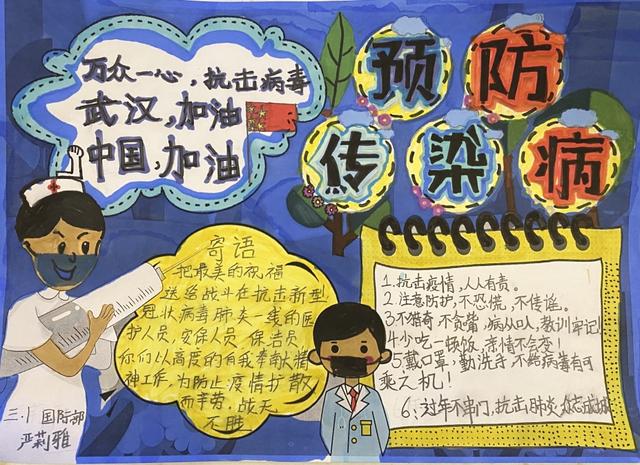 万众一心，抗击病毒
武汉，加油
中国，加油
预防
传染病
寄语
把最美的祝福
送给战斗在抗击新型
冠状病毒肺炎一线的医
护人员，安保人员，保洁员，
你们以高度的自我奉献精
神工作，为防止疫情扩散
而辛劳，战无
不胜
1、抗击疫情，人人有责。
2、注意防护，不恐慌，不传谣。
3、不猎奇 不贪嘴，病从口入，教训牢记！
4、少吃一顿饭，亲情不会变！
5、戴口罩，勤洗手，不给病毒有可
乘之机！
6：过年不串门，抗击肺炎众志成城
三.1 国际部
严莉雅